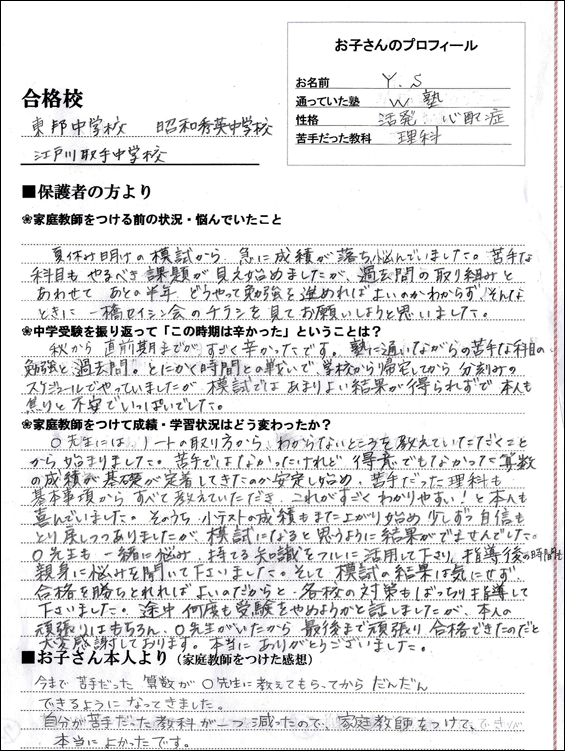 お子さんのプロフィール
お名前 Y.S
通っていた塾 W塾
性格 活発 心配症
苦手だった教科 理科
合格校
東邦中学校 昭和秀英中学校
江戸川取手中学校
■保護者の方より
❀家庭教師をつける前の状況・悩んでいたこと
夏休み明けの模試から、急に成績が落ち悩んでいました。苦手な
科目も やるべき課題が見え始めましたが、過去問の取り組みと
あわせて あと半年 どうやって勉強を進めればよいのかわからず、そんな
ときに 一橋セイシン会のチラシを見てお願いしようと思いました。
❀中学受験を振り返って「この時期は辛かった」ということは?
秋から直前期までが すごく辛かったです。塾に通いながらの苦手な科目の
勉強と過去問。とにかく時間との戦いで、学校から帰宅してから 分刻みの
スケジュールでやっていましたが、模試では あまりよい結果が得られずで 本人も
焦りと不安でいっぱいでした。
❀家庭教師をつけて成績・学習状況はどう変わったか?
○先生には、ノートの取り方から、わからないところを教えていただくこと
から始まりました。苦手ではなかったけれど 得意でもなかった算数
の成績が基礎が定着してきたのか安定し始め、苦手だった理科も
基本事項から すべて教えていただき、これがすごくわかりやすい!と本人も
喜んでいました。そのうち 小テストの成績もまた上がり始め 少しずつ自信も
とり戻しつつありましたが、模試になると思うように結果がでませんでした。
○先生も 一緒に悩み、持てる知識をフルに活用して下さり、指導後の時間も
親身に悩みを聞いて下さいました。そして 模試の結果は気にせず、
合格を勝ちとれればよいのだからと、各校の対策もばっちり指導して
下さいました。途中 何度も受験をやめようかと話しましたが、本人の
頑張りはもちろん、○先生がいたから 最後まで頑張り 合格できたのだと
大変感謝しております。本当に ありがとうございました。
■お子さん本人より(家庭教師をつけた感想)
今まで苦手だった 算数が○先生に教えてもらってから だんだん
できるようになってきました。
自分が苦手だった教科が一つ減ったので、家庭教師をつけて、
本当に よかったです。